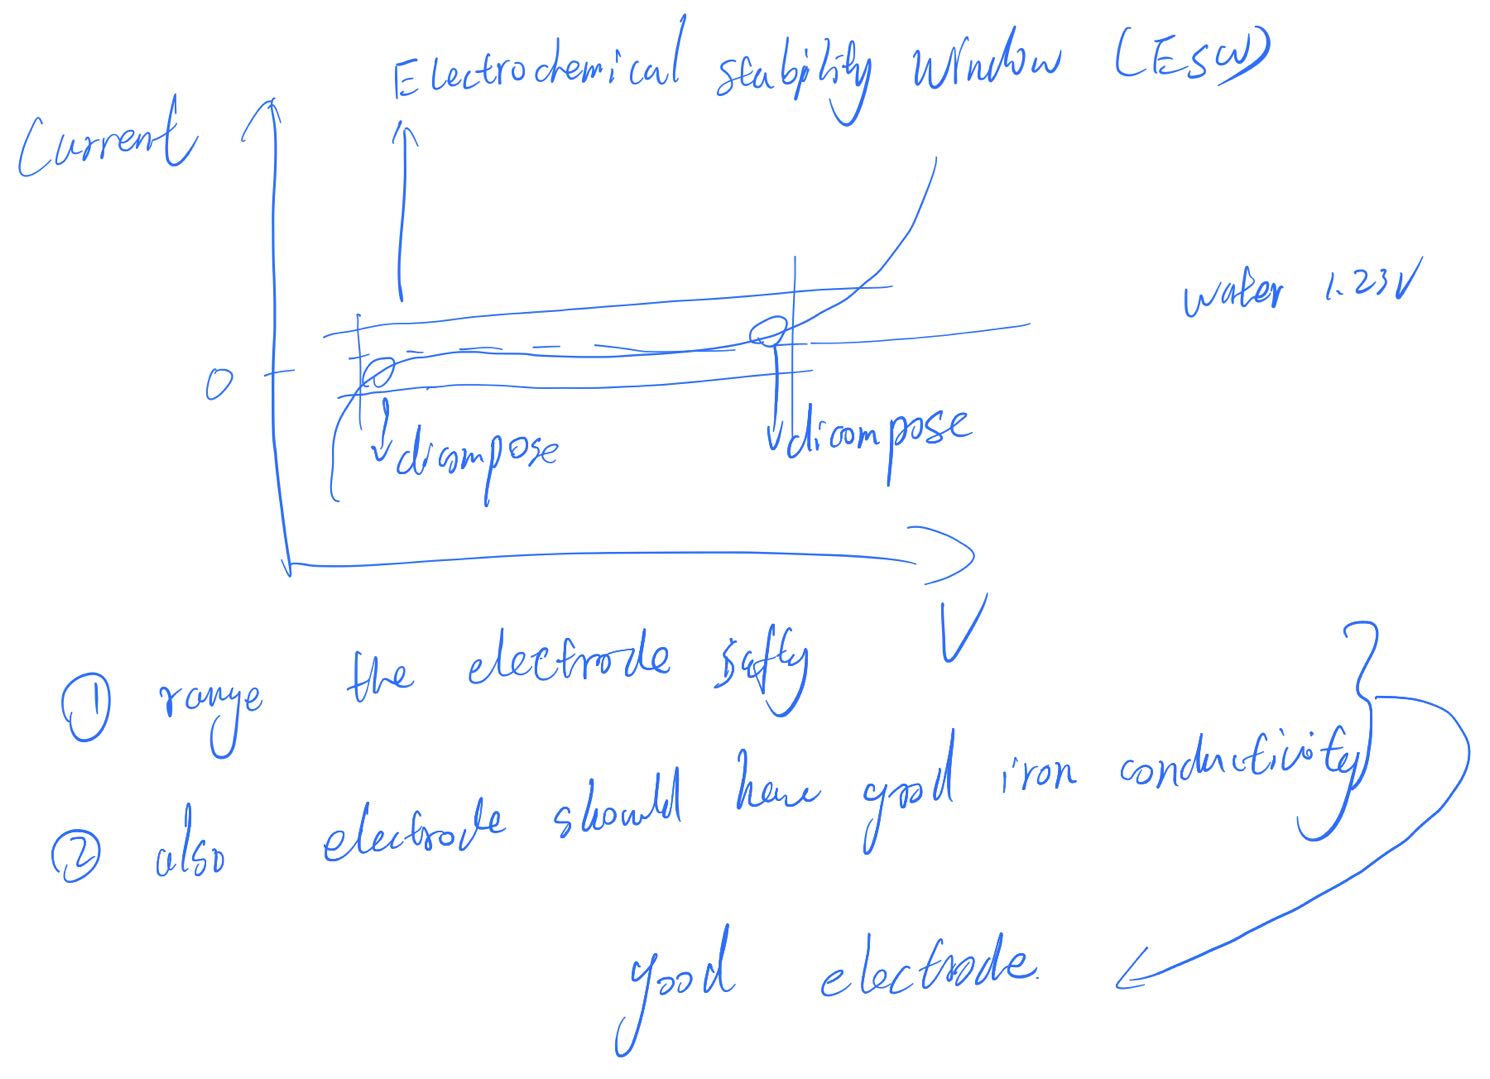 Electrochemical stability window (ESW)
Current
water 1.23V
0
dicompose
dicompose
V
① range the electrode safty
② also electrode should have good iron conductivity
good electrode